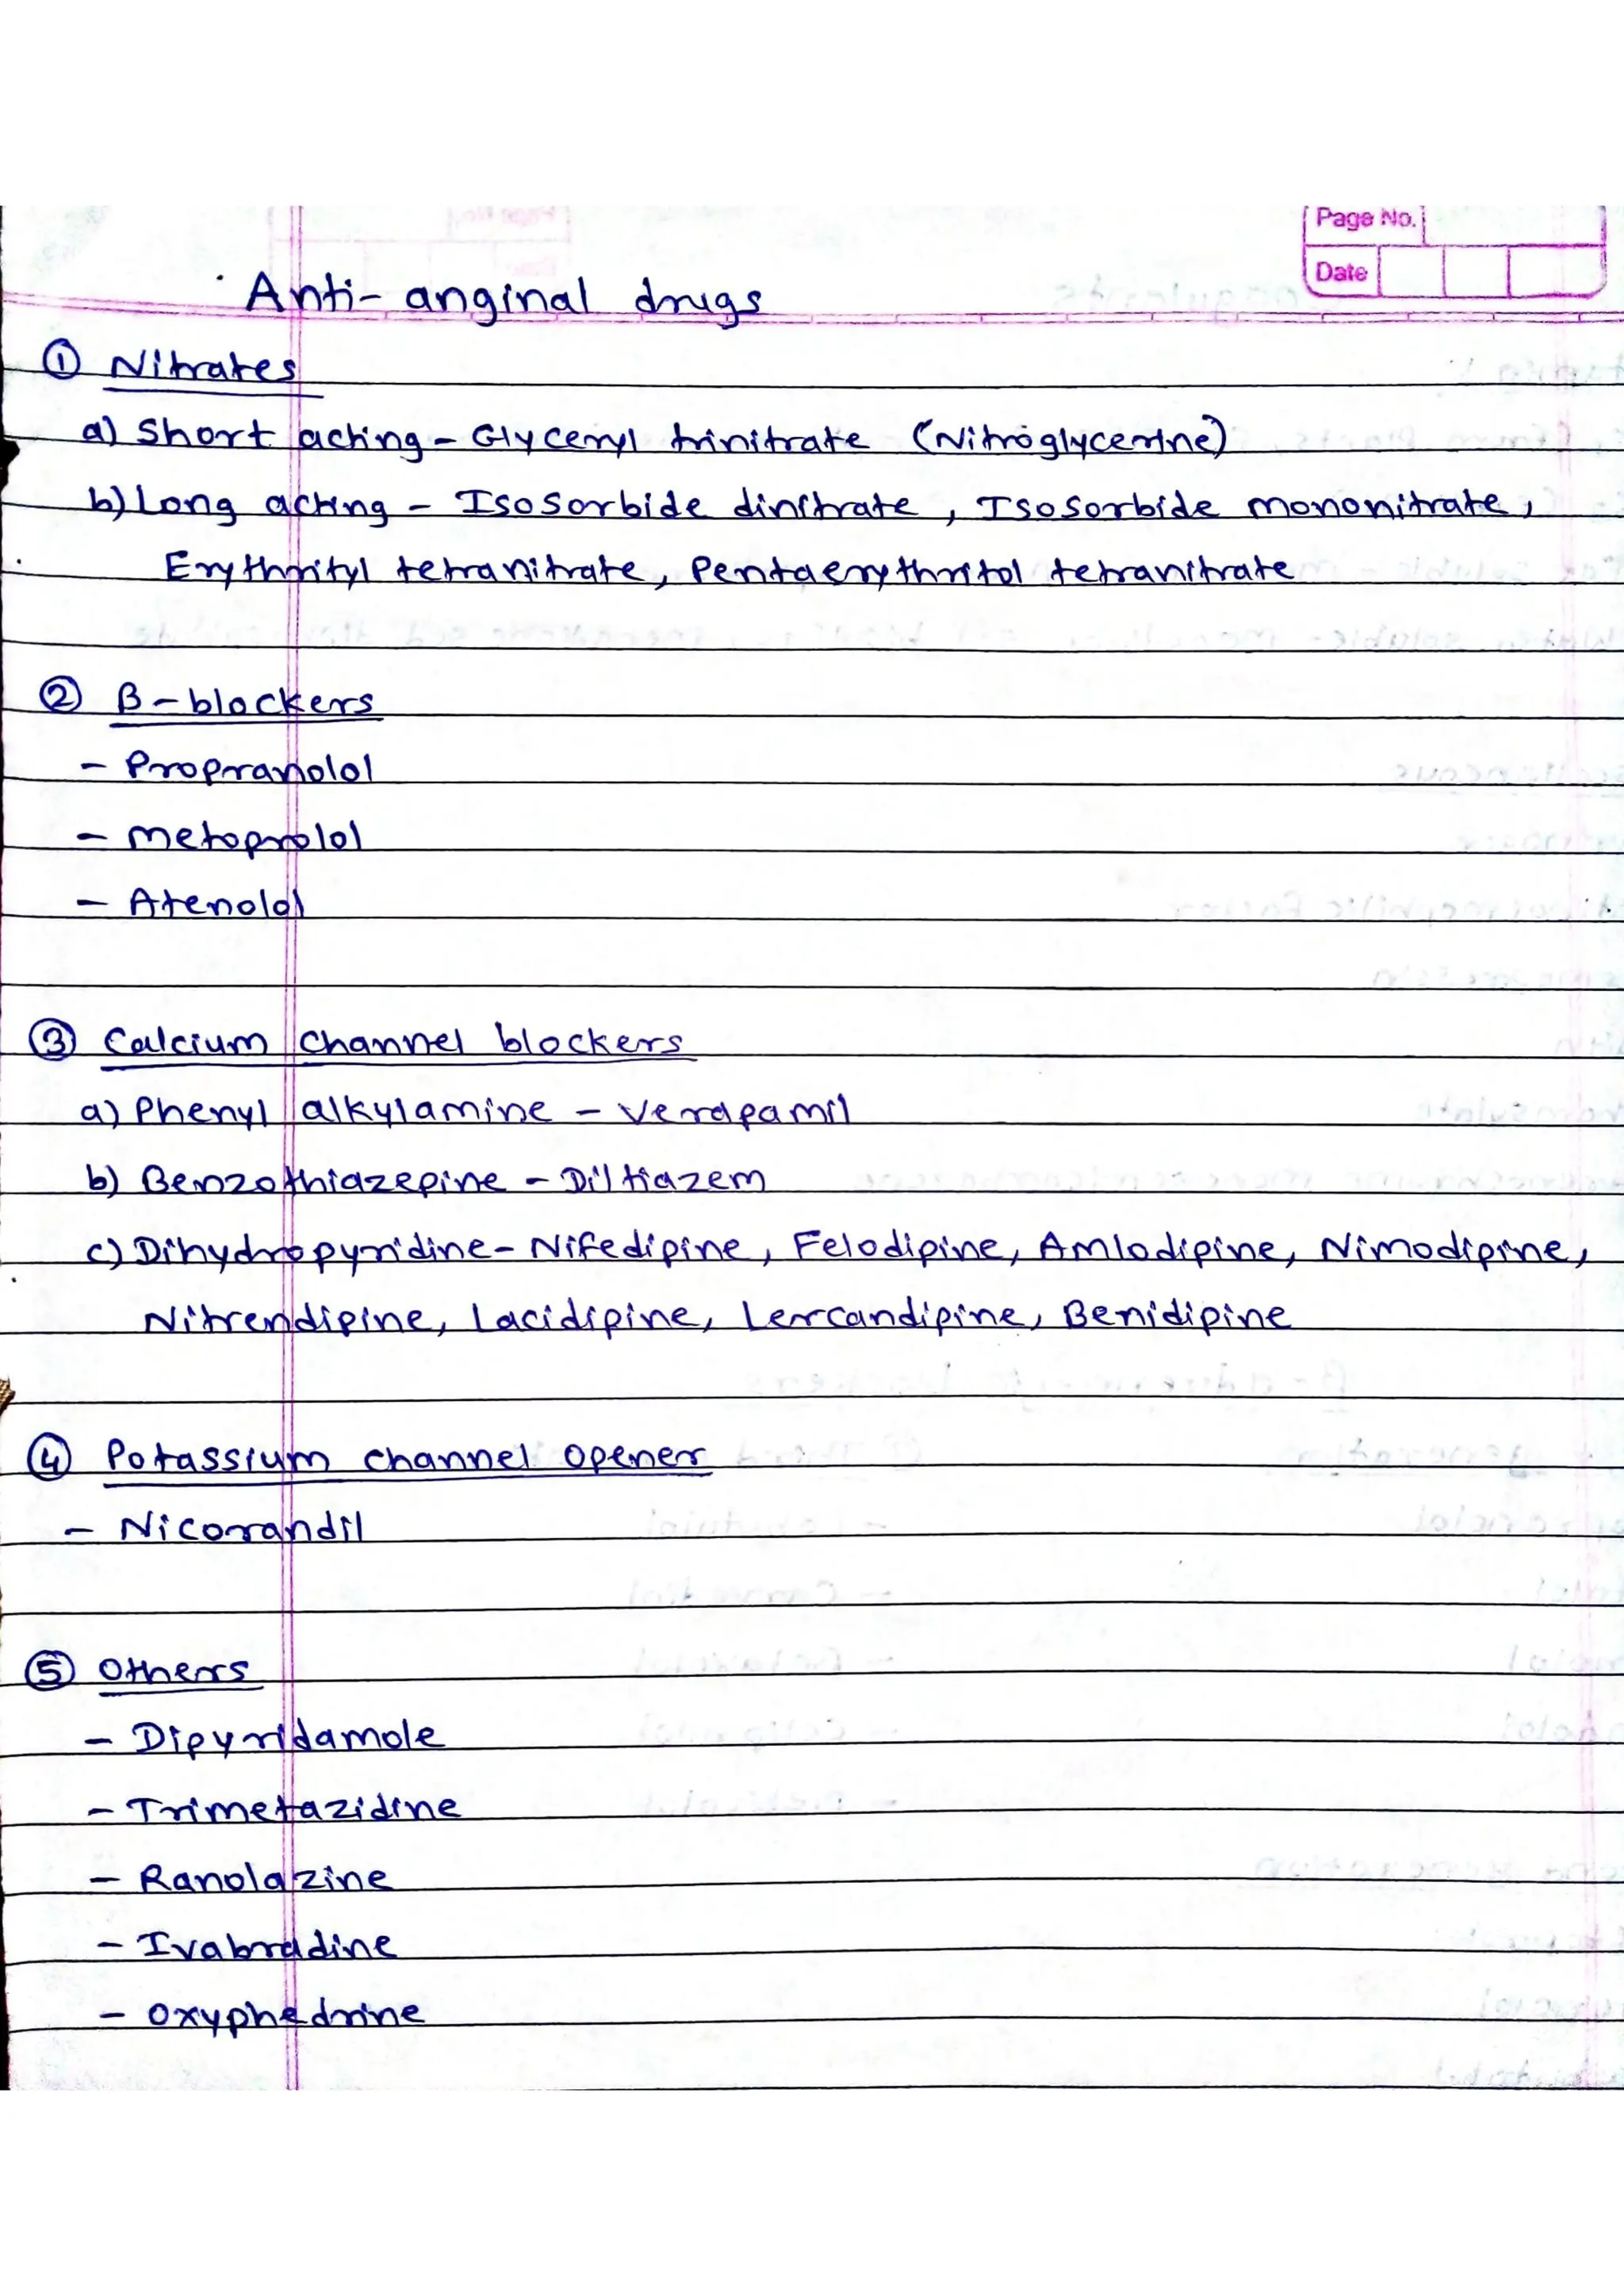 Page No.
Date
Anti-anginal drugs
① Nitrates
a) Short acting - Glyceryl trinitrate (Nitroglycerine)
b) Long acting - Isosorbide dinitrate, Isosorbide mononitrate,
Erythrityl tetranitrate, Pentaerythritol tetranitrate
② β-blockers
- Propranolol
- Metoprolol
- Atenolol
③ Calcium channel blockers
a) Phenyl alkylamine - Verapamil
b) Benzothiazepine - Diltiazem
c) Dihydropyridine - Nifedipine, Felodipine, Amlodipine, Nimodipine,
Nitrendipine, Lacidipine, Lercandipine, Benidipine
④ Potassium channel opener
- Nicorandil
⑤ Others
- Dipyridamole
- Trimetazidine
- Ranolazine
- Ivabradine
- Oxyphedrine